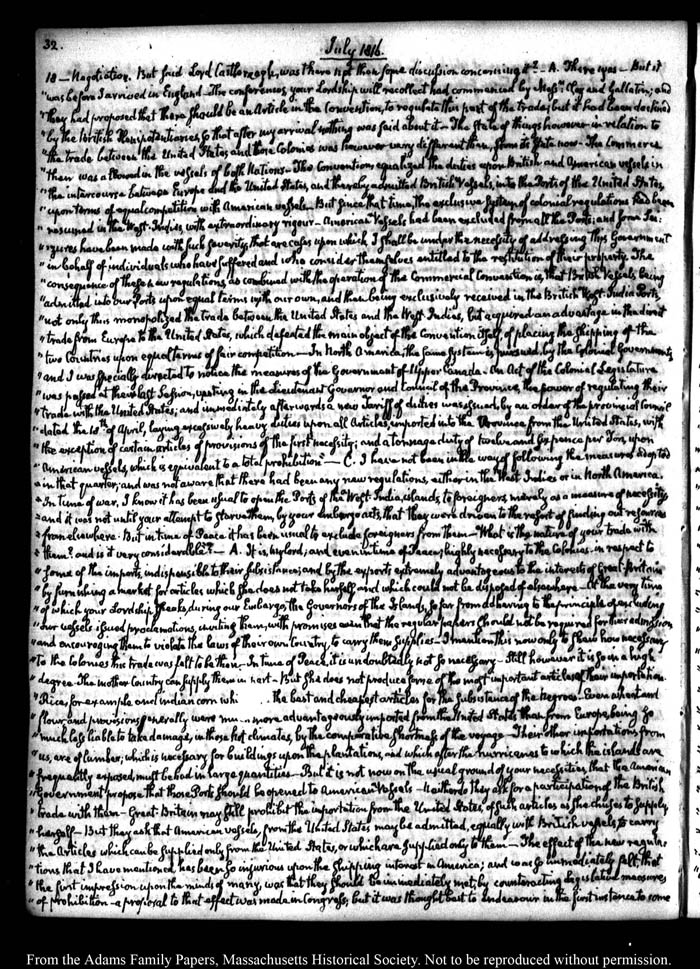 32.
July 1816.
18 — Negotiation. But said Lord Castlereagh, was there not then some discussion concerning it? — A. There was — But it
"was before I arrived in England — The conferences, your Lordship will recollect had commenced by Messrs Clay and Gallatin; and
"they had proposed that there should be an Article in the Convention, to regulate this part of the trade; but it had been declined
"by the British Plenipotentiaries, so that after my arrival nothing was said about it — The State of things however in relation to
"the trade between the United States and those Colonies was however very different then, from its state now — The Commerce
"then was allowed in the vessels of both Nations — The Convention equalized the duties upon British and American vessels in
"the intercourse between Europe and the United States, and thereby admitted British Vessels, into the Ports of the United States,
"upon terms of equal competition with American vessels. But since that time, the exclusive system of colonial regulations had been
"resumed in the West-Indies with extraordinary rigour — American Vessels had been excluded from all the Ports; and some Sei-
"zures have been made with such severity, that are cases upon which I shall be under the necessity of addressing this Government
"in behalf of individuals who have suffered and who consider themselves entitled to the restitution of their property. The
"consequence of these new regulations, as combined with the operation of the Commercial Convention is, that British Vessels being
"admitted into our Ports upon equal terms with our own, and then being exclusively received in the British West-India Ports,
"not only thus monopolized the trade between the United States and the West Indies, but acquired an advantage in the direct
"trade from Europe to the United States, which defeated the main object of the Convention itself, of placing the shipping of the
"two Countries upon equal terms of fair competition — In North America, the same system is pursued by the Colonial Governments
"and I was specially directed to notice the measures of the Government of Upper Canada — An Act of the Colonial Legislature
"was passed at their last Session, vesting in the Lieutenant Governor and Council of the Province, the power of regulating their
"trade with the United States; and immediately afterwards a new Tariff of duties was issued, by an order of the provincial Council
"dated the 18th of April, laying excessively heavy duties upon all Articles, imported into the Province from the United States, with
"the exception of certain articles of provisions of the first necessity; and a tonnage duty of twelve and six pence per Ton, upon
"American vessels, which is equivalent to a total prohibition — C. I have not been in the way of following the measures adopted
"in that quarter; and was not aware that there had been any new regulations, either in the West Indies or in North America.
"In time of war, I know it has been usual to open the Ports of the West India, islands, to foreigners merely as a measure of necessity;
"and it was not until your attempt to starve them, by your embargo acts, that they were driven to the resort of finding out resources
"from elsewhere. But in time of Peace it has been usual to exclude foreigners from them — What is the nature of your trade with
"them? and is it very considerable? — A. It is my lord; and even in time of Peace, highly necessary to the Colonies, in respect to
"some of the imports, indispensible to their subsistence; and by the exports extremely advantageous to the interests of Great-Britain
"by furnishing a market for articles which she does not take herself, and which could not be disposed of elsewhere — At the very time
"of which your Lordship speaks, during our Embargo, the Governors of the Islands, so far from adhering to the principle of excluding
"our vessels issued proclamations, inviting them, with promises even that the regular papers should not be required for their admission
"and encouraging them to violate the laws of their own Country, to carry them supplies — I mention this now only to shew how necessary
"to the Colonies this trade was felt to be then — In time of Peace, it is undoubtedly not so necessary — Still however it is so in a high
"degree. The mother Country can supply them in part — But she does not produce some of the most important articles of their importation.
"Rice, for example, and indian corn the best and cheapest articles for the subsistence of the Negroes — Even wheat and
"flour, and provisions generally were more advantageously imported from the United States than from Europe being so
"much less liable to take damage, in those hot climates, by the comparative shortness of the voyage — Their other importations from
"us, are of lumber; which is necessary for buildings upon the plantations, and which after the hurricanes to which the islands are
"frequently exposed, must be had in large quantities — But it is not now on the usual ground of your necessities, that the American
"Government propose that those Ports should be opened to American Vessels — Neither do they ask for a participation of the British
"trade with them — Great Britain may still prohibit the importation from the United States, of such articles as she chuses to supply
"herself — But they ask that American vessels, from the United States may be admitted, equally with British vessels, to carry
"the Articles which can be supplied only from the United States, or which are supplied only to them — The effect of the new regula-
"tions that I have mentioned, has been so injurious upon the Shipping interest in America; and was so immediately felt that
"the first impression upon the minds of many, was that they should be immediately met, by counteracting legislative measures,
"of prohibition — a proposal to that effect was made in Congress; but it was thought best to endeavour in the first instance to some
From the Adams Family Papers, Massachusetts Historical Society. Not to be reproduced without permission.